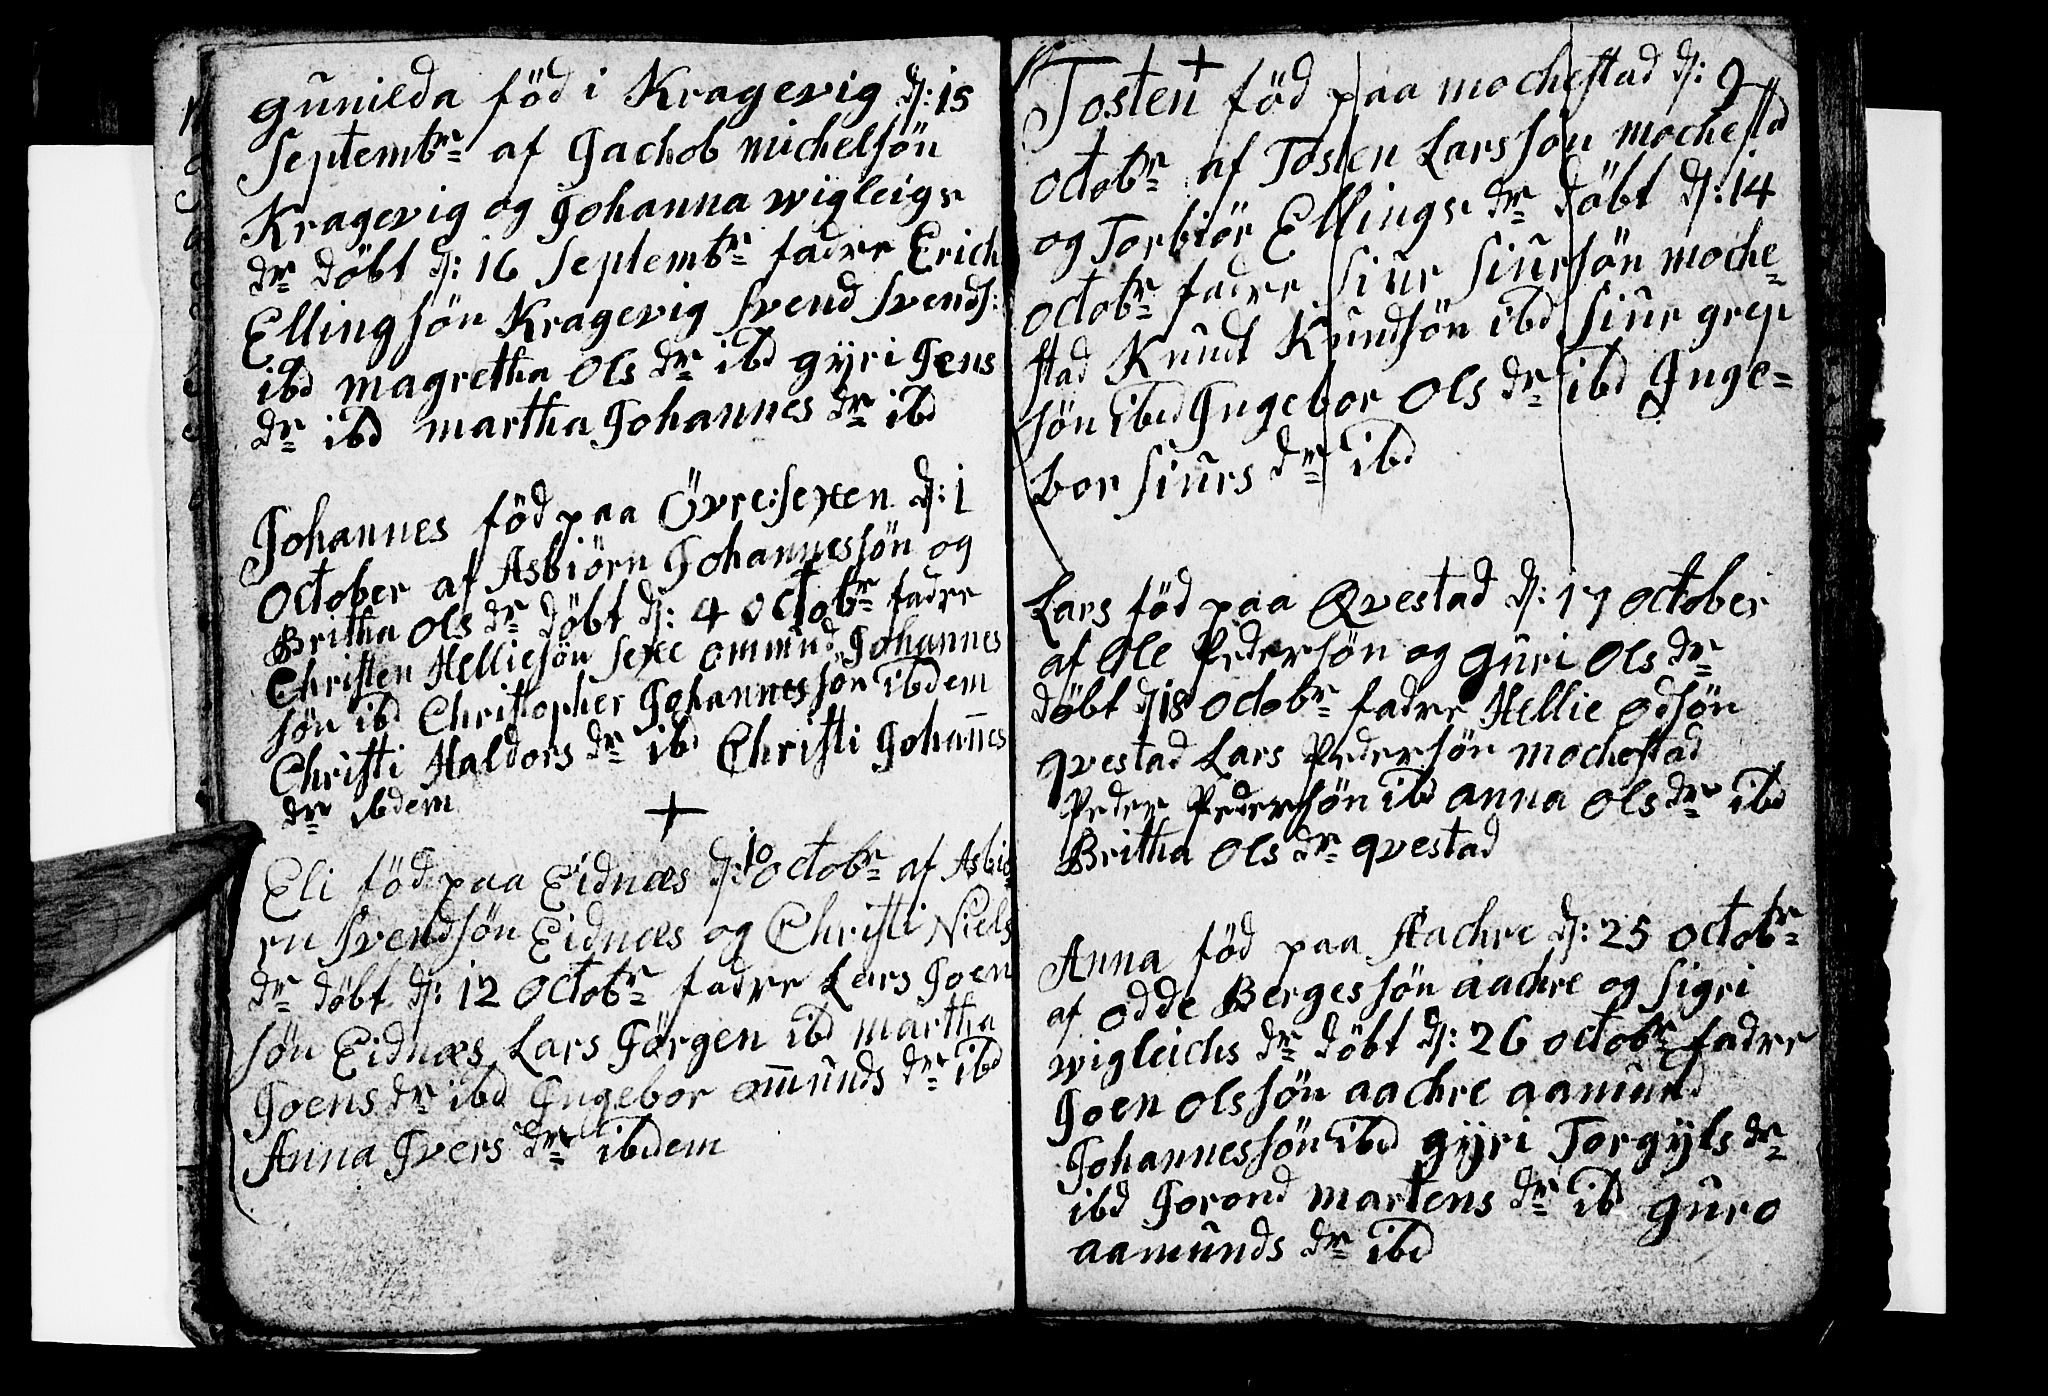 gunilda föd i Kragevig d: 15
Septembr af Jachob michelsön
Kragevig og Johanna wigleigs
dr döbt d: 16 Septembr fadre Erich
Ellingsön Kragevig Svend Svends:
ibd magretha Ols dr ibd gÿri Jens
dr ibd martha Johannes dr ibd
Johannes föd paa Övre:sexen d: 1
October af Asbiörn Johannessön og
Britha Ols dr döbt d: 4 Octobr fadre
Christen Helliesön Sexe Ommund Johannes
sön ibd Christopher Johannessön ibdem
Christi Haldors dr ibd Christi Johan̄es
dr ibdem
Eli föd paa Eidnæs d: 10 Octobr af Asbiö
rn Svendsön Eidnæs og Christi Niels
dr döbt d: 12 Octobr fadre Lars Joen
sön Eidnæs Lars Jörgen ibd martha
Joens dr ibd Ingebor om̄unds dr ibd
Anna Ivers dr ibdem
Tosten föd paa mochestad d: 9
Octobr af Tosten Larssön mochestd
og Torbiör Ellings dr döbt d: 14
Octobr fadre Siur Siursön moche=
stad Knudt Knudsön ibd Siur grep
sön ibd Ingebor Ols dr ibd Inge=
bor Siurs dr ibd
Lars föd paa Qvestad d: 17 October
af Ole Pedersön og guri Ols dr
döbt d 18 Octobr fadre Hellie Odsön
qvestad Lars Pedersön mochestad
Peder Pedersön ibd anna Ols dr ibd
Britha Ols dr qvestad
Anna föd paa Aachre d: 25 Octobr
af Odde Bergessön aachre og Sigri
wigleichs dr döbt d: 26 Octobr fadre
Joen Olssön aachre aamund
Johannessön ibd gÿri Torgÿls dr
ibd Jorond martens dr ibd guro
aamunds dr ibd